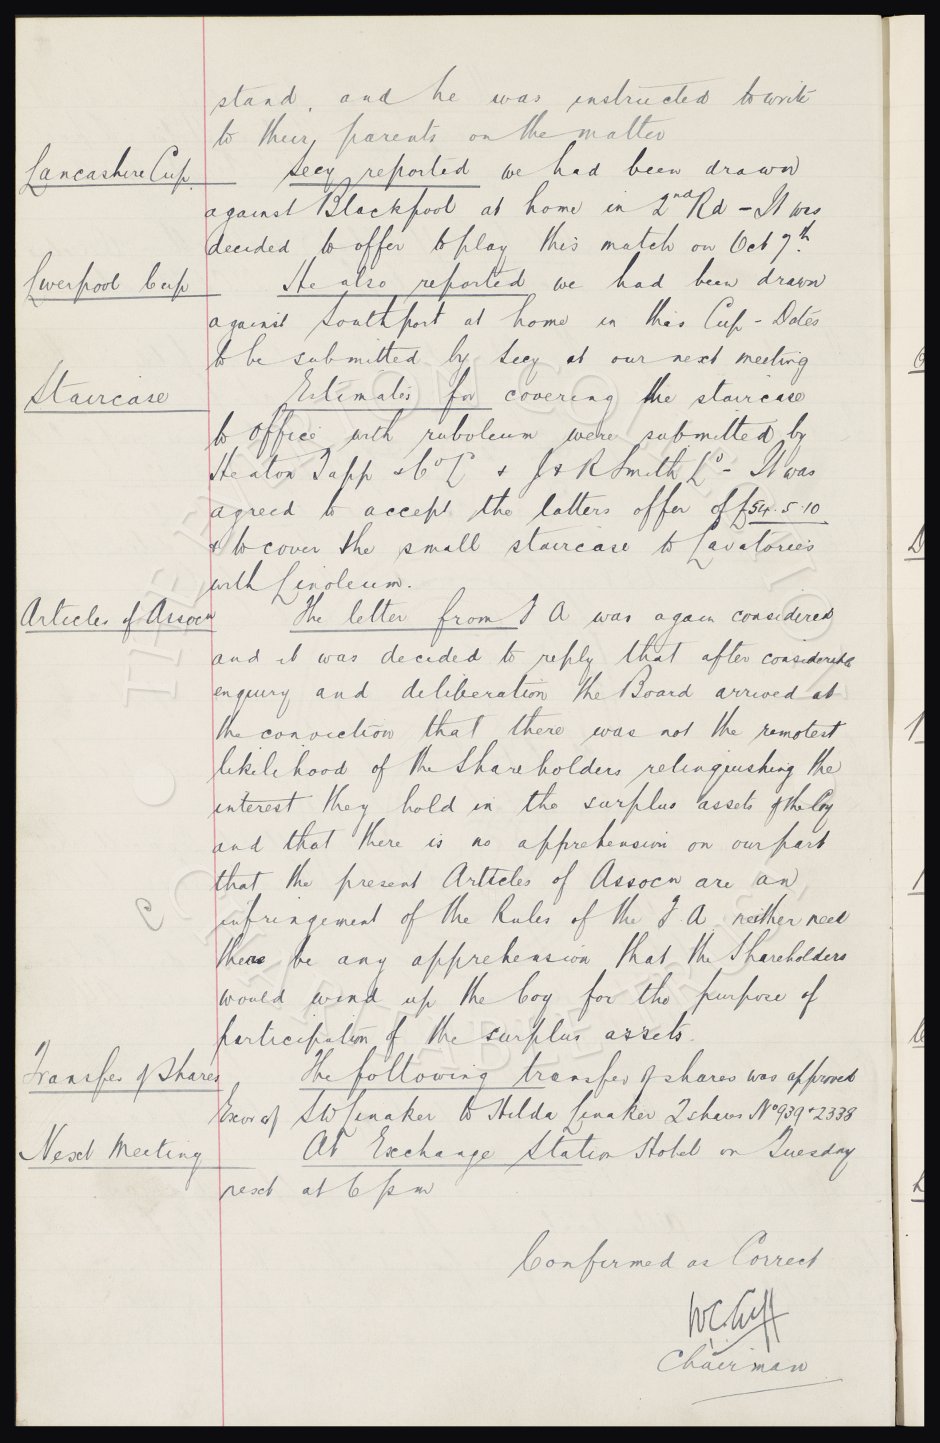 stand, and he was instructed to write
to their parents on the matter
Lancashire Cup. Secy reported we had been drawn
against Blackpool at home in 2nd Rd - It was
decided to offer to play this match on Oct 7th.
Liverpool Cup He also reported we had been drawn
against Southport at home in this Cup - Dates
to be submitted by Secy at our next meeting
Staircase Estimates for covering the staircase
to office with ruboleum were submitted by
Heaton Tapp & Co Ld & J & R Smith Ld - It was
agreed to accept the latters offer of £54.5.10
& to cover the small staircase to Lavatories
with Linoleum.
Articles of Assocn The letter from F A was again considered
and it was decided to reply that after considerable
enquiry and deliberation the Board arrived at
the conviction that there was not the remotest
likelihood of the Shareholders relinquishing the
interest they hold in the surplus assets of the Coy
and that there is no apprehension on our part
that the present Articles of Assocn are an
infringement of the Rules of the F.A. neither need
there be any apprehension that the Shareholders
would wind up the Coy for the purpose of
participation of the surplus assets.
Transfer of Shares The following transfer of shares was approved
Exors of SW Linaker to Hilda Linaker 2 shares No 939 & 2338
Next Meeting At Exchange Station Hotel on Tuesday
next at 6 pm
Confirmed as Correct
W.C. Cuff
Chairman